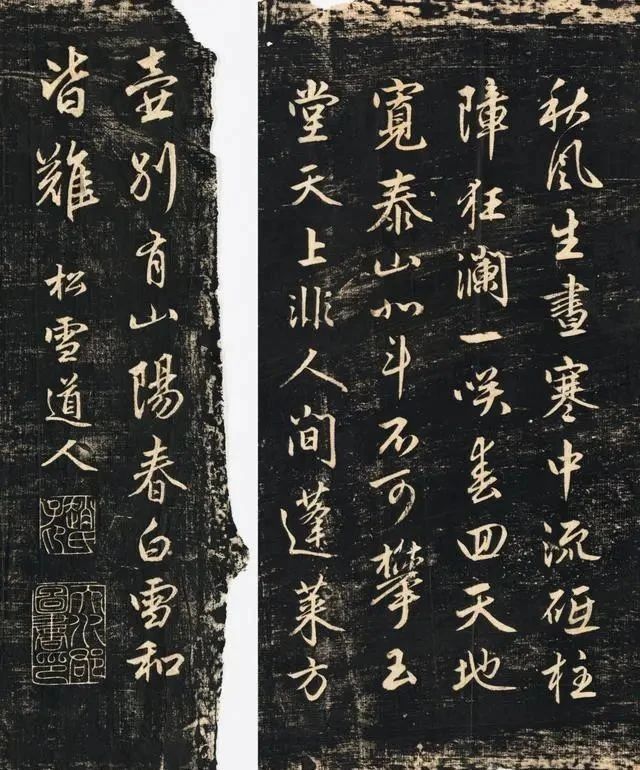 秋風生晝寒中流砥柱
障狂瀾一咲春回天地
寬泰山北斗不可攀玉
堂天上非人間蓬萊方
壺別有山陽春白雪和
皆難 松雪道人
趙氏子昂
天水郡圖書印